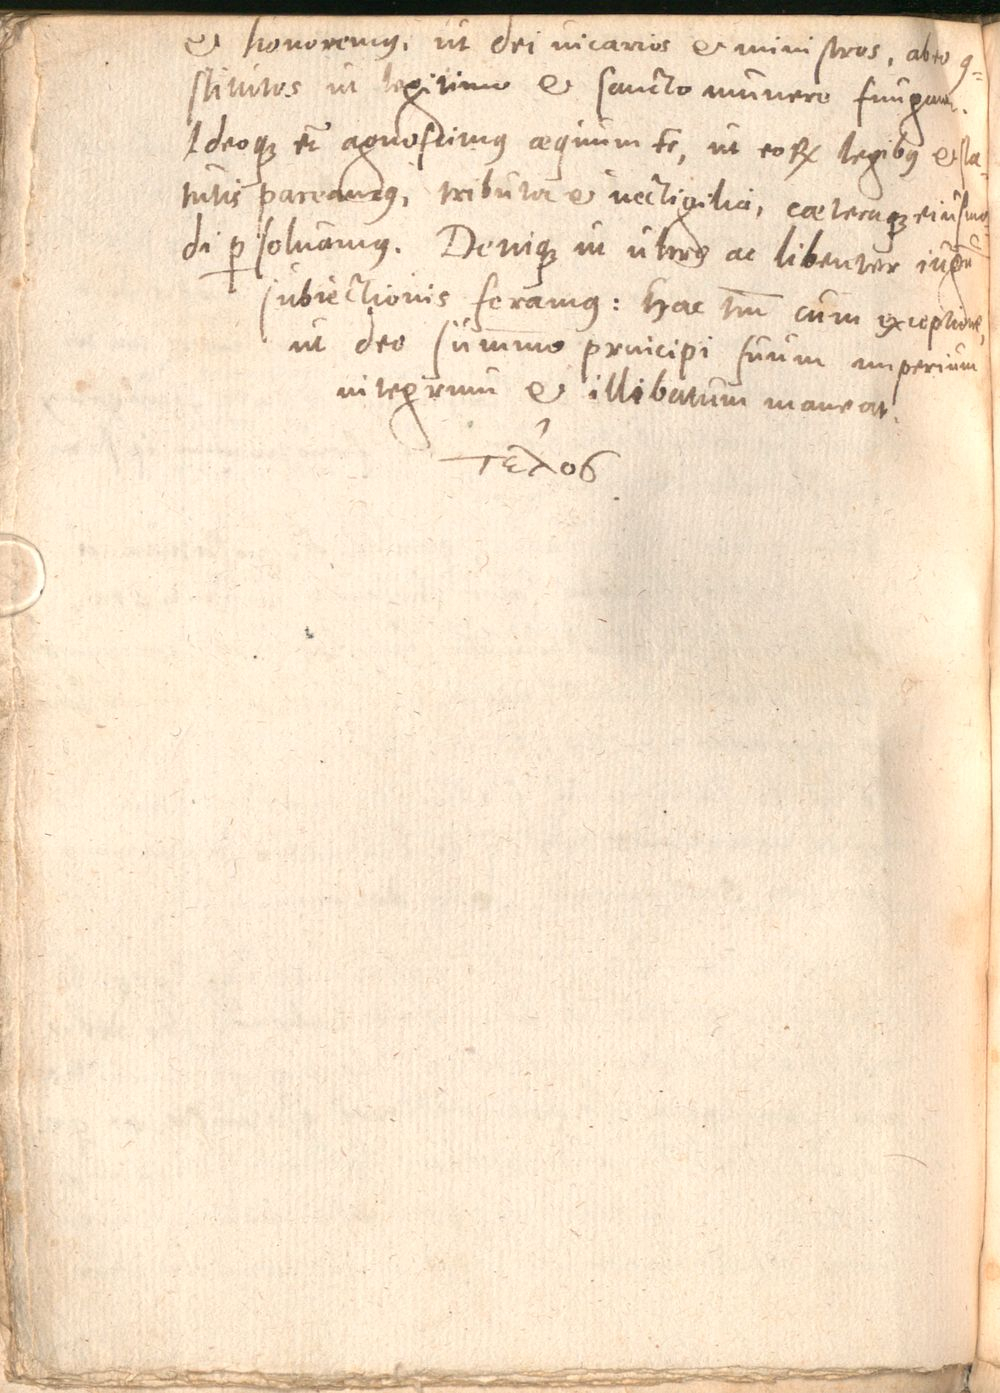 & honoremus, ut dei vicarios & ministros, ab eo 9-
stitutos ut legitimo & sancto munere fungant.
Ideoq; et̄ agnoscimus æquum eē, ut eoꝝ legibus & sta-
tutis pareamus, tributa & vectigalia, cæteraq; eiusmo-
di ꝑsolvamus. Deniq; ut ultro ac libenter iugū
subiectionis feramus: Hac tm̄ cum exceptione,
ut deo sum̄mo principi suum imperium
integrum & illibatum maneat.
τέλος